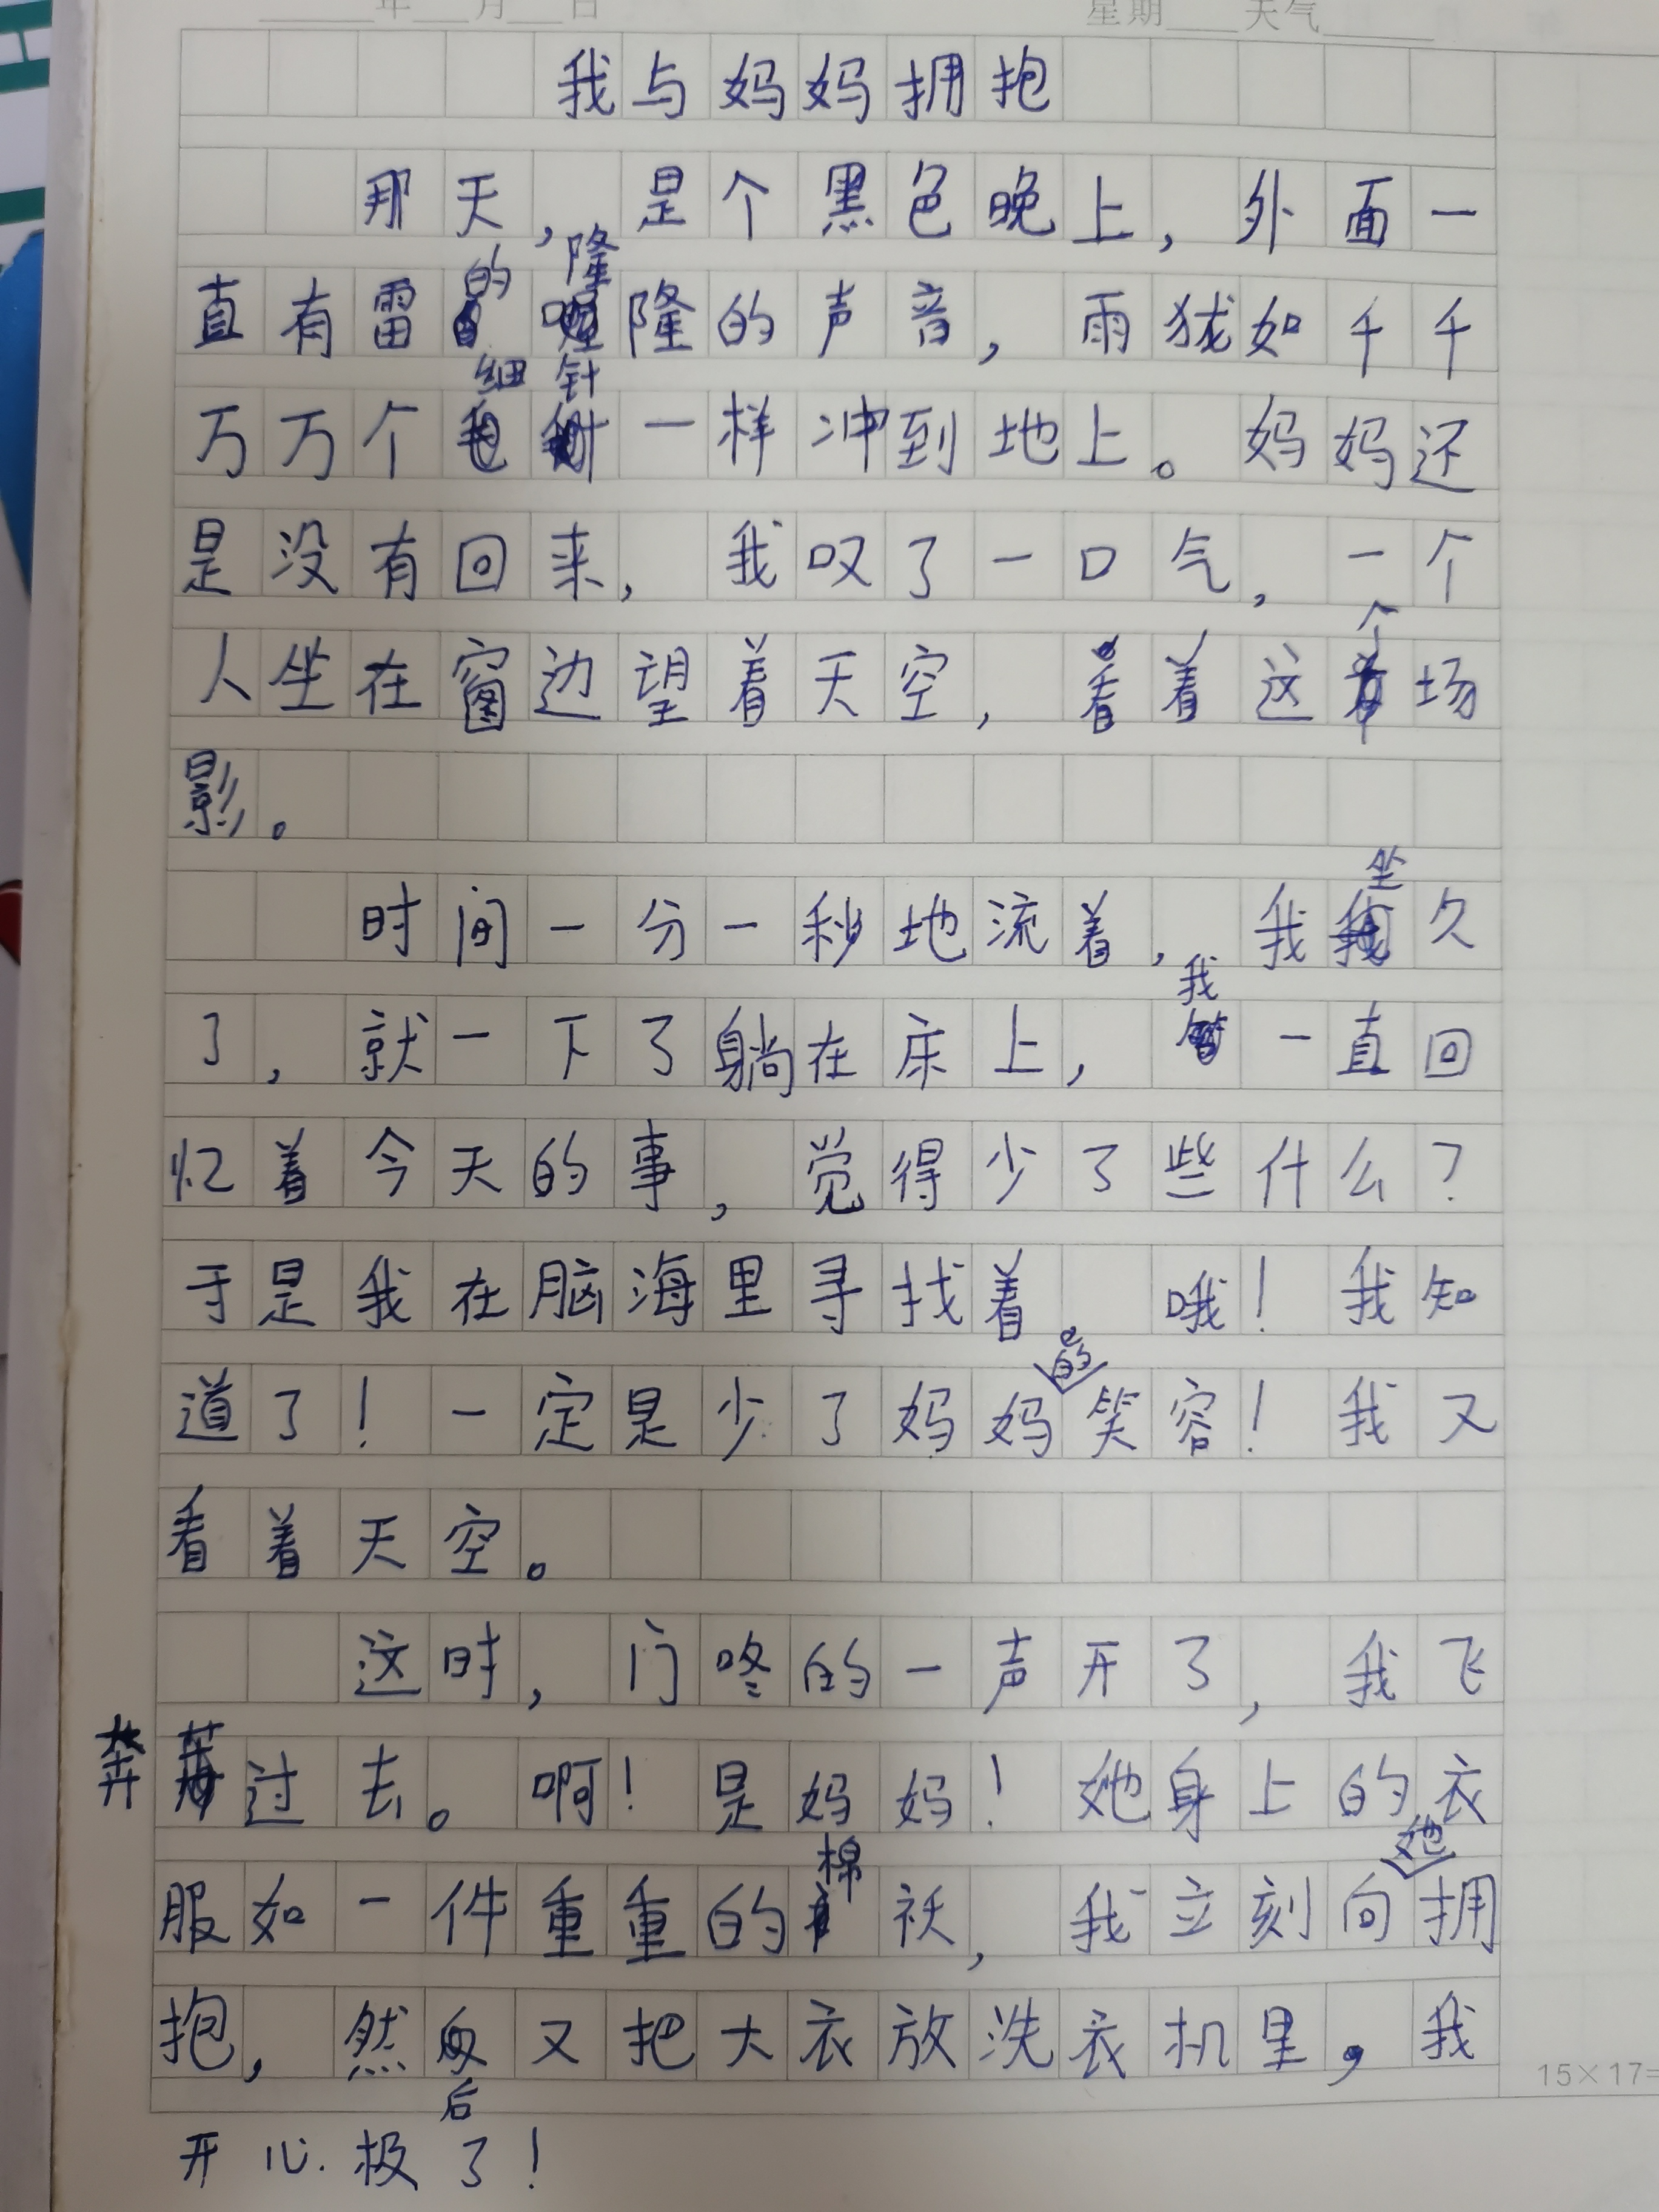 年 月 日 星期 天气
我与妈妈拥抱
那天,是个黑色晚上,外面一
直有雷的隆隆的声音,雨犹如千千
万万个细针一样冲到地上。妈妈还
是没有回来,我叹了一口气,一个
人坐在窗边望着天空,看着这个场
影。
时间一分一秒地流着,我坐久
了,就一下了躺在床上,我一直回
忆着今天的事,觉得少了些什么?
于是我在脑海里寻找着,哦!我知
道了!一定是少了妈妈的笑容!我又
看着天空。
这时,门咚的一声开了,我飞
奔过去。啊!是妈妈!她身上的衣
服如一件重重的棉袄,我立刻向她拥
抱,然后又把大衣放洗衣机里,我
开心极了!
15×17=